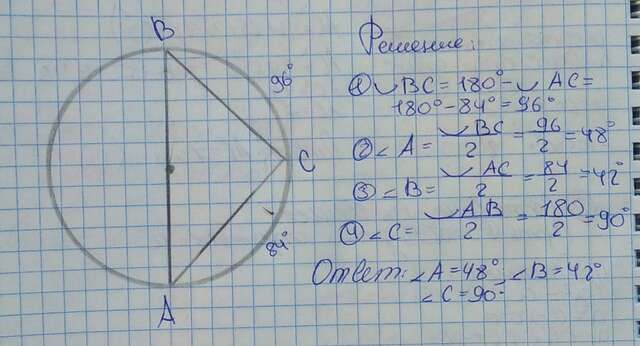 B
96°
C
84°
A
Решение:
① ◡BC = 180° - ◡AC =
180° - 84° = 96°
② ∠A = ◡BC/2 = 96/2 = 48°
③ ∠B = ◡AC/2 = 84/2 = 42°
④ ∠C = ◡AB/2 = 180/2 = 90°
Ответ: ∠A = 48°, ∠B = 42°
∠C = 90°